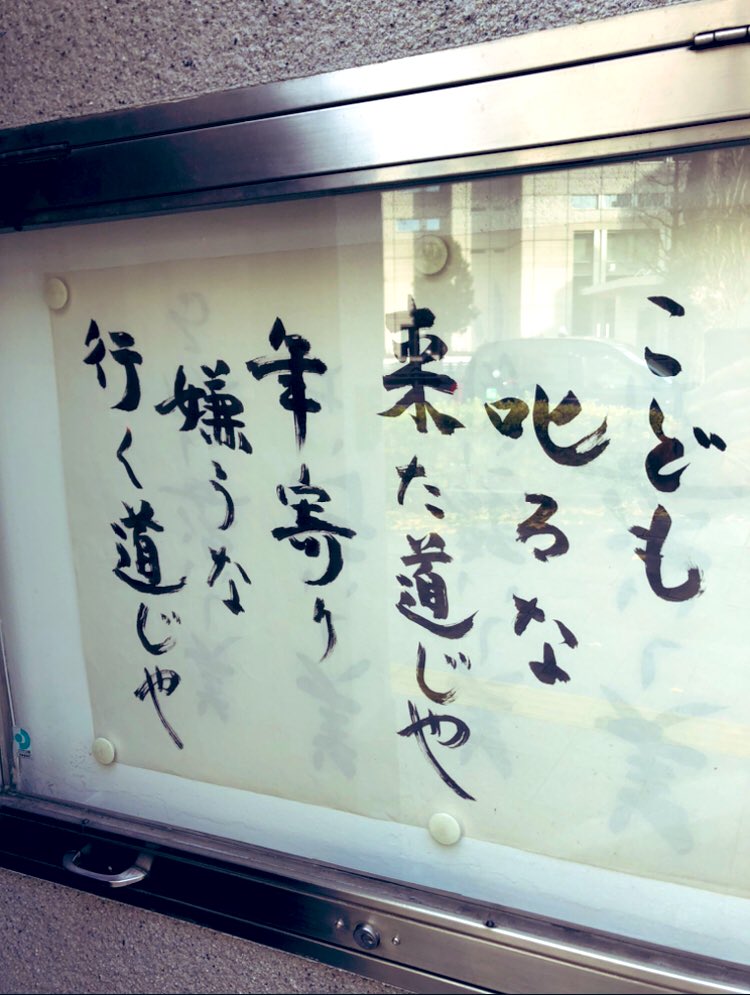 こども
叱るな
来た道じゃ
年寄り
嫌うな
行く道じゃ